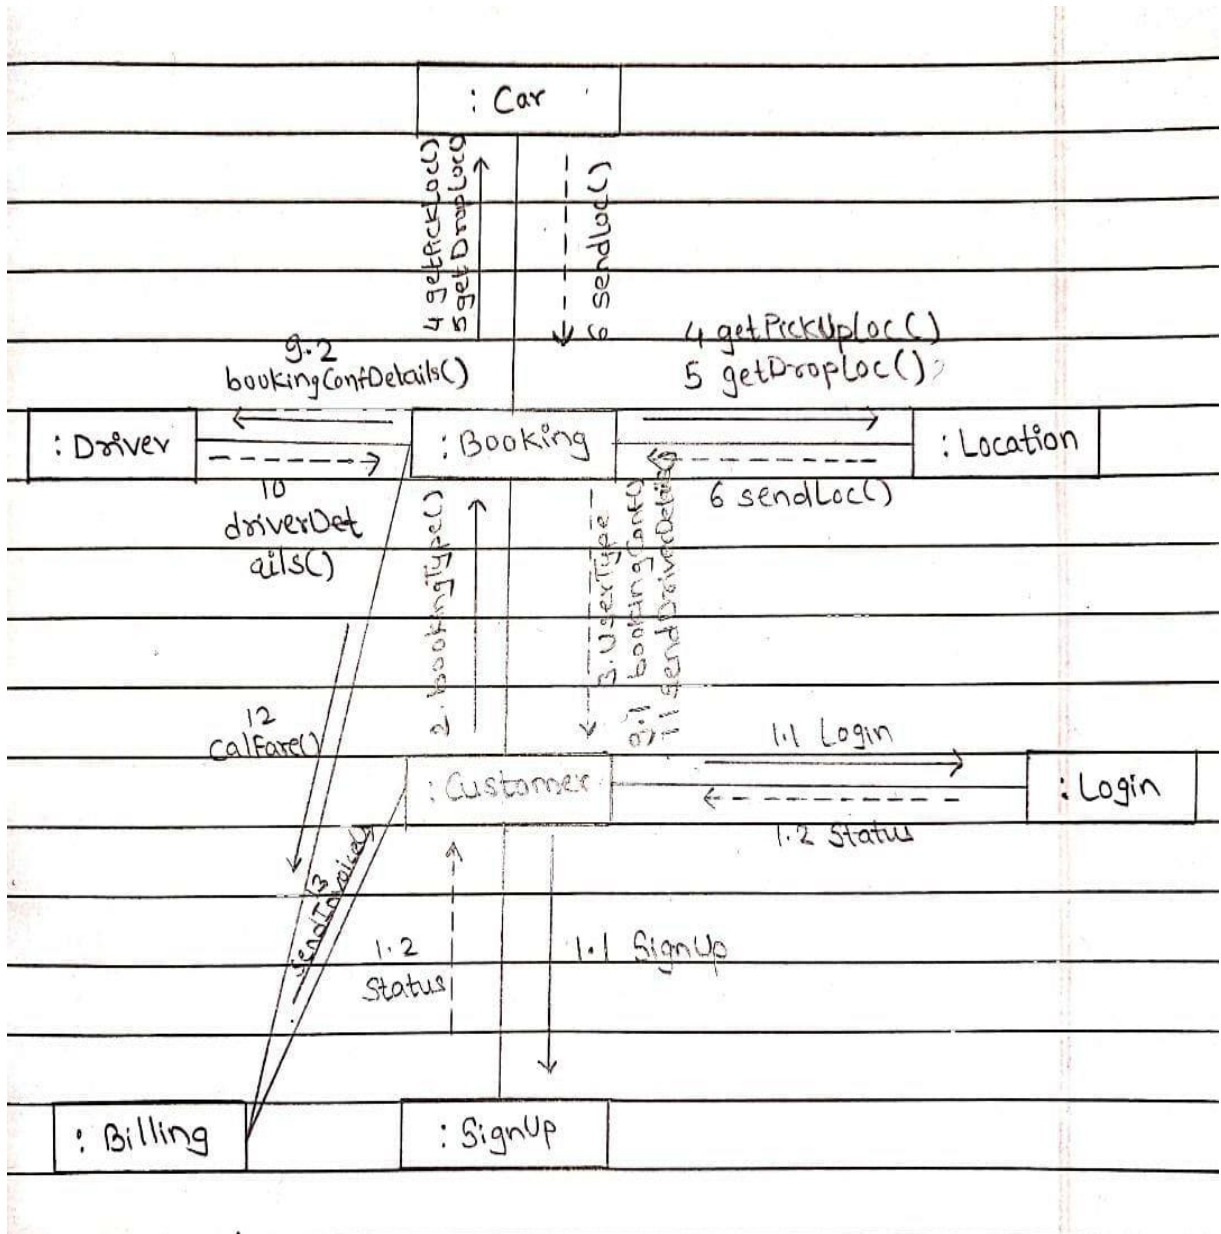 : Car
4 getPickLoc()
5 getDropLoc()
6 sendLoc()
9.2
bookingConfDetails()
4 getPickUpLoc()
5 getDropLoc()
: Driver
: Booking
: Location
10
driverDet
ails()
6 sendLoc()
2. bookingType()
3. UserType
9.1 bookingConf()
11 sendDriverDetails()
12
calFare()
1.1 Login
: Customer
: Login
1.2 Status
13
sendInvoice()
1.2
Status
1.1 SignUp
: Billing
: SignUp